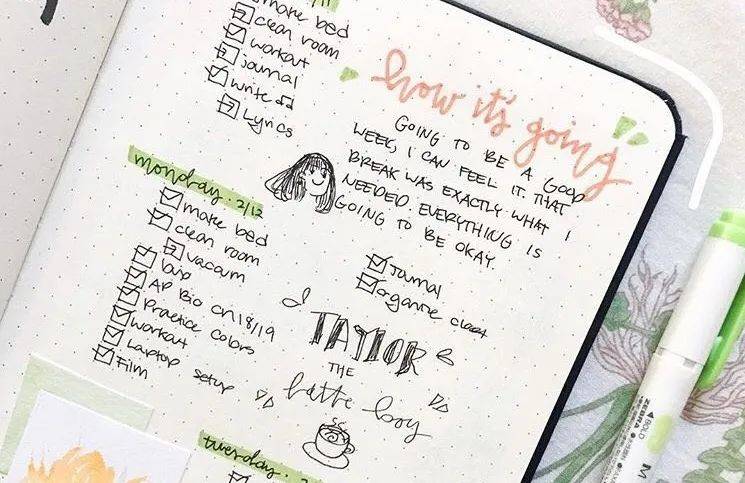 make bed
clean room
workout
journal
write
Lyrics
monday. 2/12
make bed
clean room
vacuum
AP Bio Ch 18/19
Practice colors
workout
Laptop setup
Film
how it's going
GOING TO BE A GOOD
WEEK, I CAN FEEL IT. THAT
BREAK WAS EXACTLY WHAT I
NEEDED. EVERYTHING IS
GOING TO BE OKAY.
Journal
organize closet
TAYLOR
THE
latte boy
tuesday. 2
ZEBRA
BOLD
M